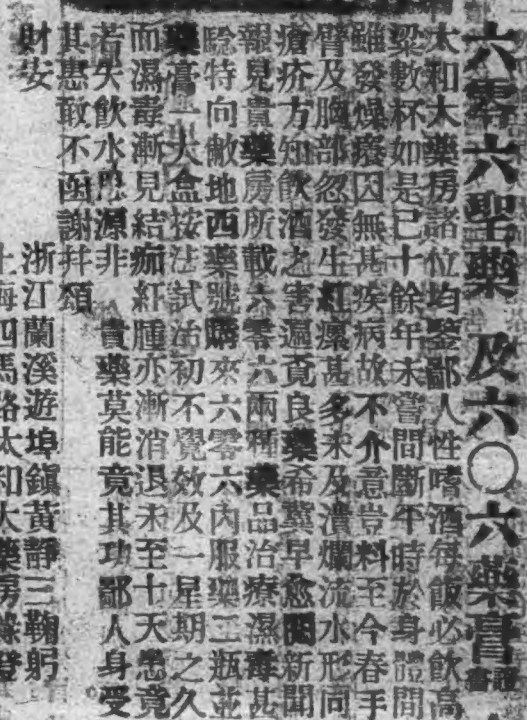 六零六聖藥 及六〇六藥膏證書
太和大藥房諸位均鑒鄙人性嗜酒每飯必飲高
粱數杯如是已十餘年未嘗間斷平時於身體間
雖發燥癢因無甚疾病故不介意豈料至今春手
臂及胸部忽發生紅瘰甚多未及潰爛流水形同
瘡疥方知飲酒之害遍覓良藥希冀早愈閱新聞
報見貴藥房所載六零六兩種藥品治療濕毒甚
騐特向敝地西藥號購來六零六內服藥二瓶並
藥膏一大盒按法試治初不覺效及一星期之久
而濕毒漸見結痂紅腫亦漸消退未至十天患竟
若失飲水思源非 貴藥莫能竟其功鄙人身受
其惠敢不函謝幷頌
財安 浙江蘭溪遊埠鎮黃靜三鞠躬
上海四馬路太和大藥房